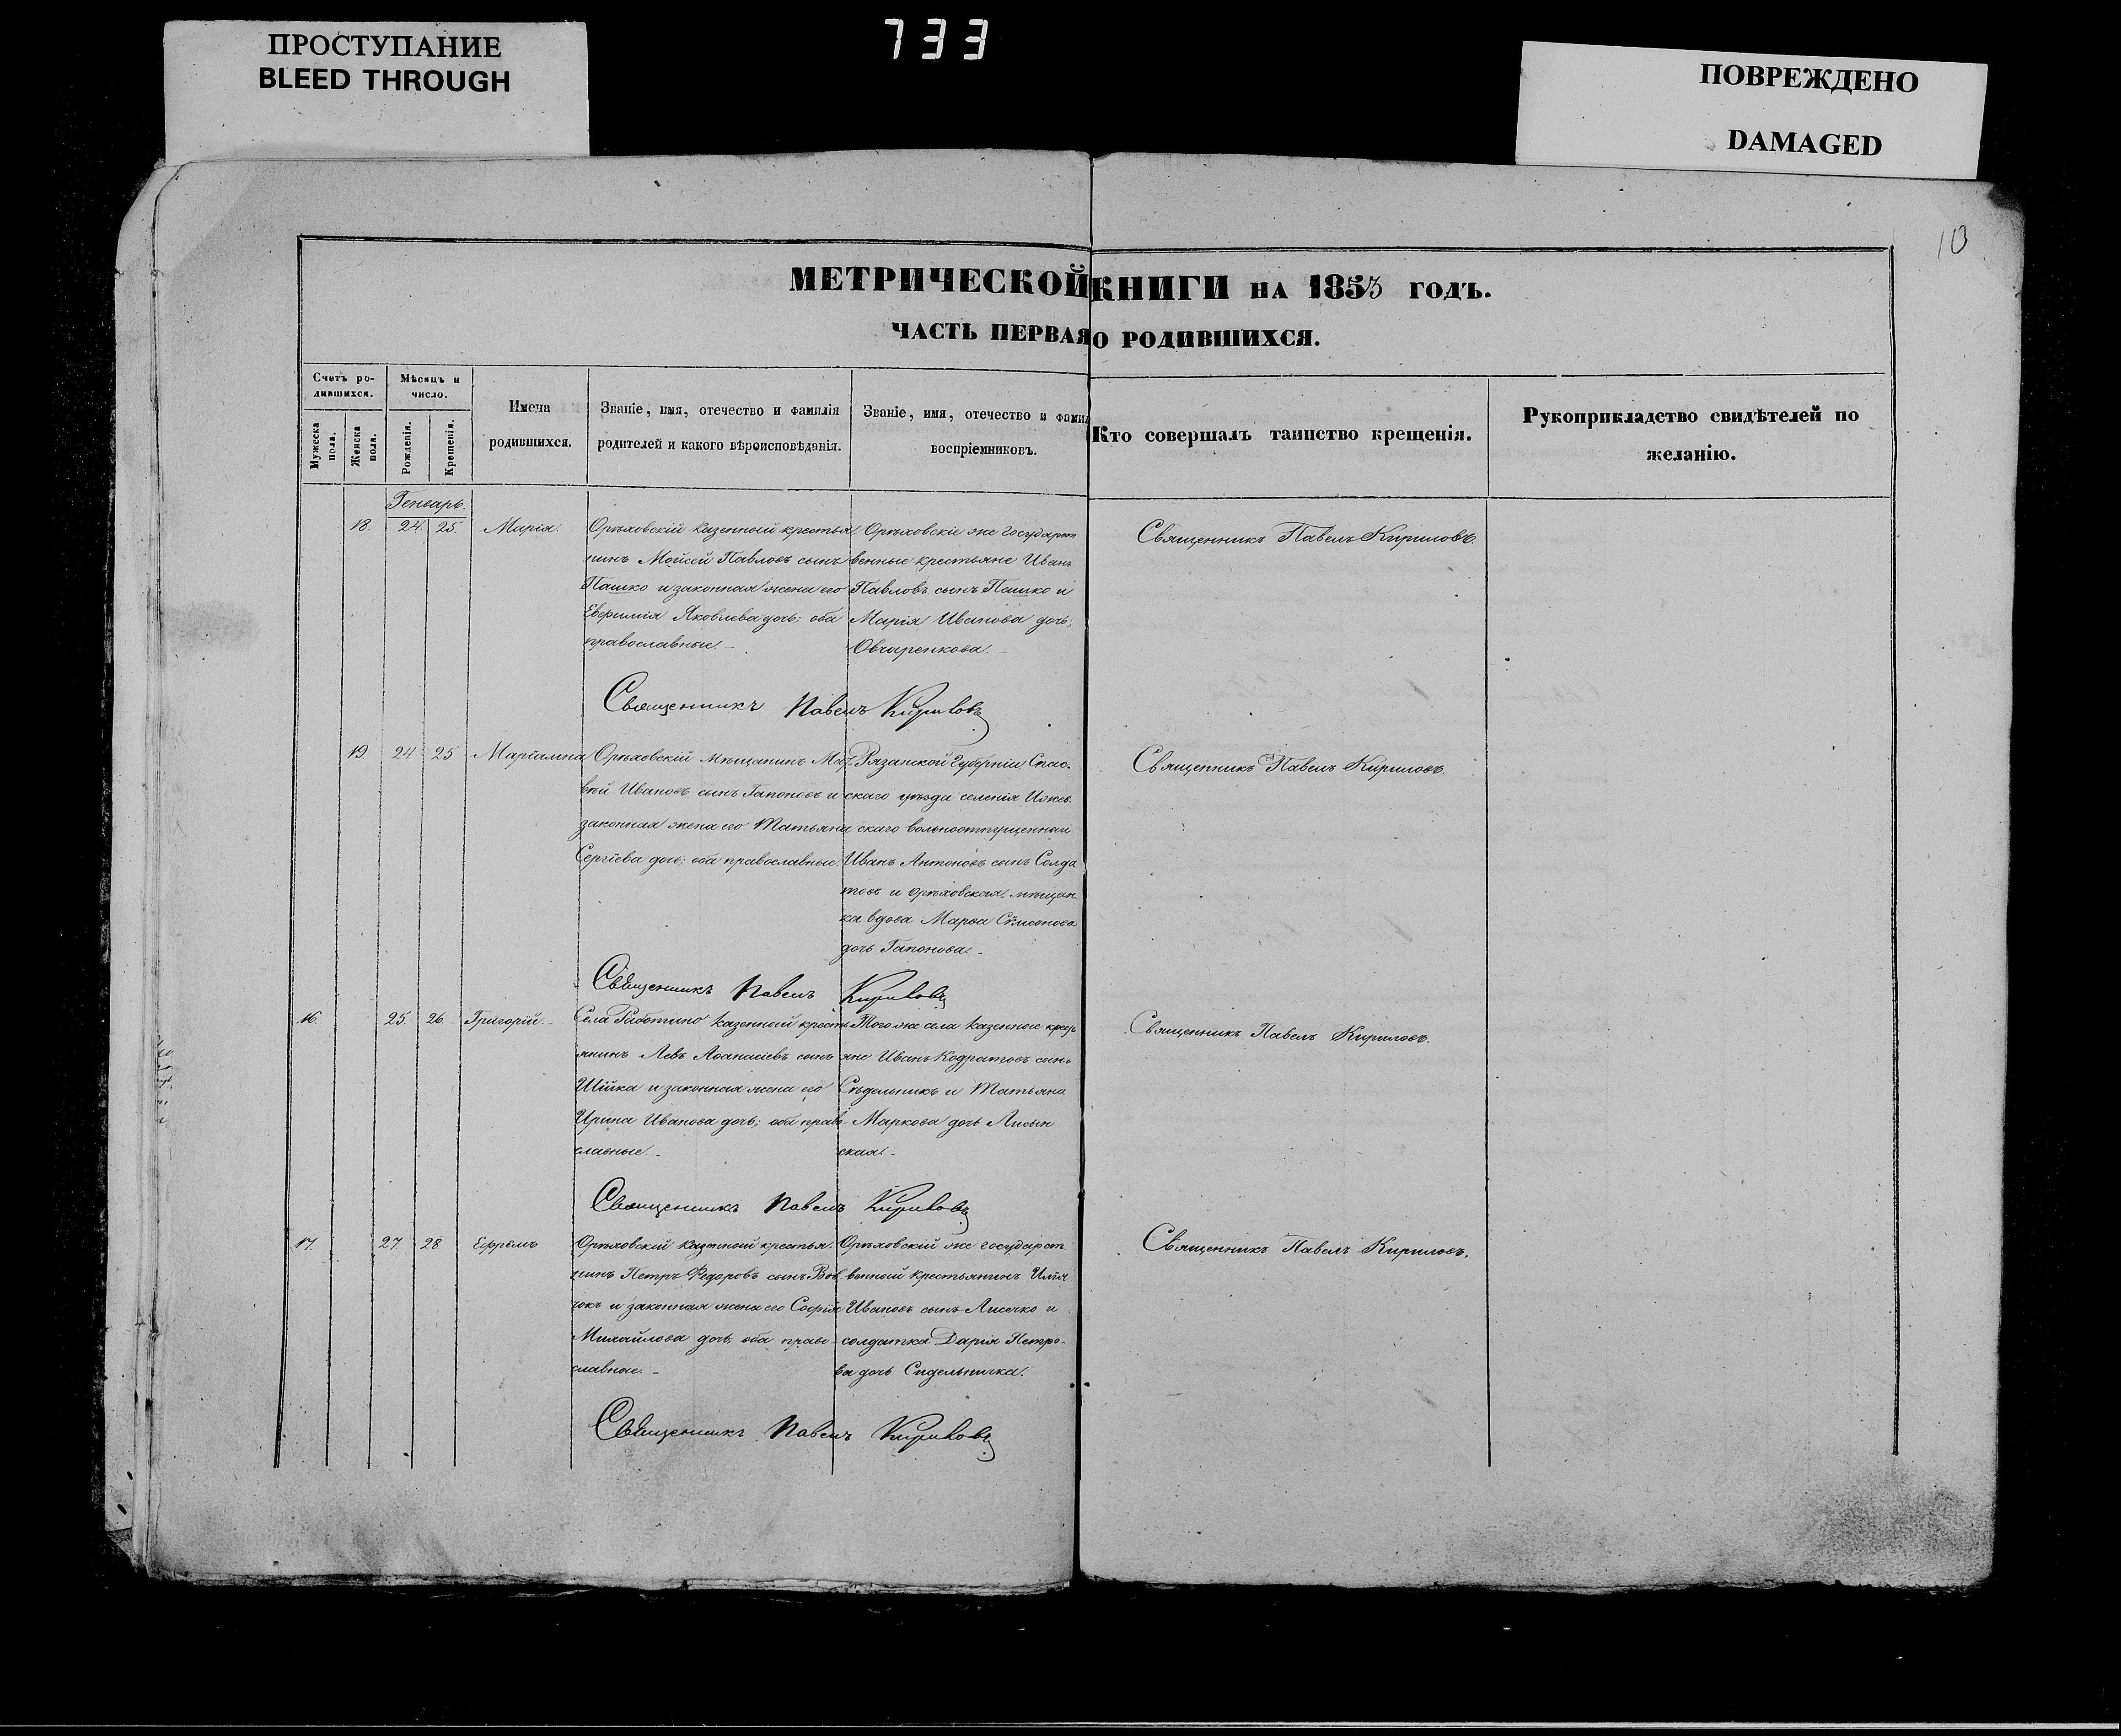 ПРОСТУПАНИЕ
BLEED THROUGH
733
ПОВРЕЖДЕНО
DAMAGED
10
МЕТРИЧЕСКОЙ КНИГИ НА 1853 ГОДЪ.
ЧАСТЬ ПЕРВАЯ О РОДИВШИХСЯ.
Счетъ ро-
дившихся.
Мужеска
пола.
Женска
пола.
Мѣсяцъ и
число.
Рожденія.
Крещенія.
Имена
родившихся.
Званіе, имя, отечество и фамилія
родителей и какого вѣроисповѣданія.
Званіе, имя, отечество и фамил
воспріемниковъ.
Кто совершалъ таинство крещенія.
Рукоприкладство свидѣтелей по
желанію.
Генварь.
18. 24. 25. Марія.
Орѣховскій казенный крестья
нинъ Моисей Павловъ сынъ
Пашко и законная жена его
Евфимія Яковлева дочь; оба
православные. -
Орѣховскіе же государст
венные крестьяне Иванъ
Павловъ сынъ Пашко и
Марія Иванова дочь,
Овчаренкова. -
Священникъ Павелъ Кириловъ.
Священникъ Павелъ Кириловъ
19. 24 25 Маріамна
Орѣховскій мѣщанинъ Мат-
вѣй Ивановъ сынъ Гапоновъ и
законная жена его Татьяна
Сергіева дочь; оба православные.
Рязанской Губерніи Спас-
скаго уѣзда селенія Ижев-
скаго вольноотпущенный
Иванъ Антоновъ сынъ Солда
товъ и орѣховская мѣщан-
ка вдова Марѳа Симонова
дочь Гапонова. -
Священникъ Павелъ Кириловъ.
Священникъ Павелъ Кириловъ
16. 25. 26. Григорій. -
Села казенный кресть
янинъ Левъ Аѳанасіевъ сынъ
Шійка и законная жена его
Ирина Иванова дочь; оба право
славные. -
Того же села казенные кресть
яне Иванъ Кодратовъ сынъ
Сѣдельникъ и Татьяна
Маркова дочь
ская. -
Священникъ Павелъ Кириловъ.
Священникъ Павелъ Кириловъ
17. 27. 28 Ефремъ
Орѣховскій казенный крестья-
нинъ Петръ Ѳедоровъ сынъ Вов
чокъ и законная жена его Софія
Михайлова дочь; оба право-
славные. -
Орѣховскій же государст
венный крестьянинъ Илія
Ивановъ сынъ Лисечко и
солдатка Дарія Петро-
ва дочь Сидельничка.
Священникъ Павелъ Кириловъ.
Священникъ Павелъ Кириловъ